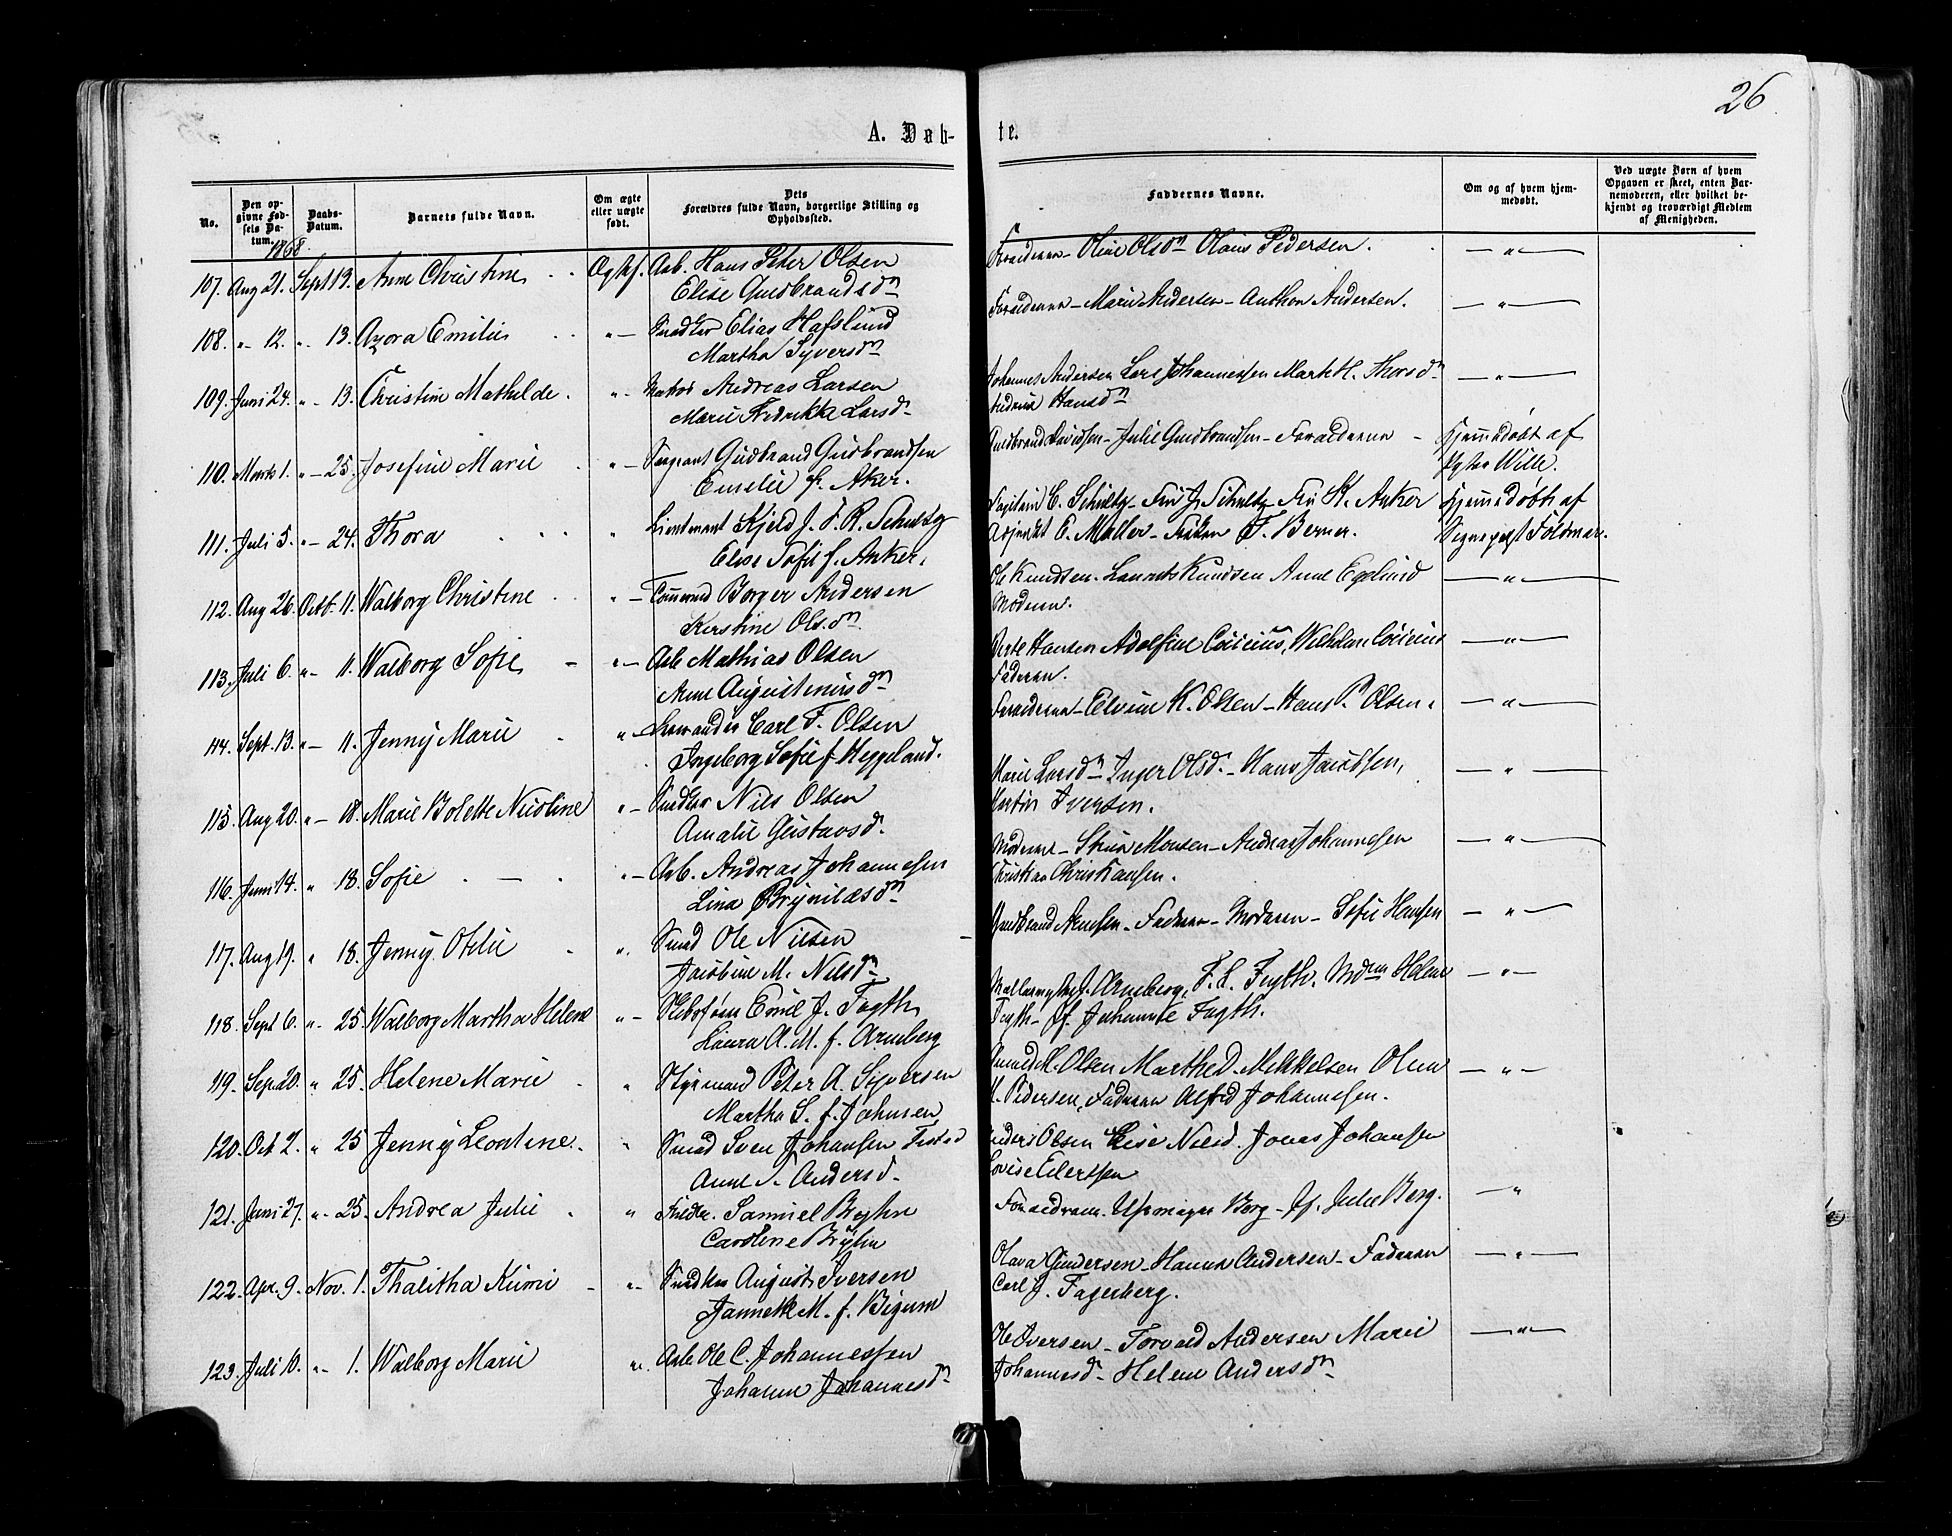 26
A. Døb- te.
No.
Den op-
givne Fød-
sels Da-
tum.
Daabs-
Datum.
Barnets fulde Navn.
Om ægte
eller uægte
født.
Dets
Forældres fulde Navn, borgerlige Stilling og
Opholdssted.
Faddernes Navne.
Om og af hvem hjem-
medøbt.
Ved uægte Børn af hvem
Opgaven er skeet, enten Bar-
nemoderen, eller hvilket be-
kjendt og troværdigt Medlem
af Menigheden.
1868.
107. Aug 21. Sept 13. Anne Christine Ægtef. Arb. Hans Peter Olsen
Elise Gudbrandsdn
Forældrene - Oline Olsdn Olaus Pedersen. — " —
108. " 12. " 13. Azora Emilie " — Snedker Elias Hafslund
Martha Syversdn
Forældrene - Marie Andersen - Anthon Andersen. — " —
109. Juni 24. " - 13. Christine Mathilde. " - Matros Andreas Larsen
Marie Fredrikke Larsd.
Johannes Andersen Lars Johannessen Marthe H. Thorsdn — " —
Hansdn
110. Marts 1. " - 25. Josefine Marie " - Sergeant Gudbrand Gudbrandsen
Emelie f. Aker.
Gudbrand Davidsen - Julie Gudbrandsen - Forældrene - Hjemmedøbt af
Wille.
111. Juli 5. " - 24. Thora " Lieutenant Kjeld J. F. R. Schultz
Elise Sofie f. Anker.
Capitain C. Schultz - Fru J. Schultz Fru St. Anker Hjemmedøbt af
Adjunkt C. Møller - Frøken F. Berner.
112. Aug 26. Octb. 11. Walborg Christine " - Tømmermd Borger Andersen
Kerstine Olsdn
Ole Knudsen. Laurits Knudsen Anne Eglund — " —
Moderen.
113. Juli 6. " - 11. Walborg Sofie - " - Arb Mathias Olsen
Anne Augustinusdn
Hansen Adolfine Wilhelm — " —
Faderen.
114. Sept. 13. " - 11. Jenny Marie " - Carl F. Olsen
Ingeborg Sofie f. Heggeland.
Forældrene - Elvine K. Olsen - Hans P. Olsen. — " —
115. Aug 20. " - 18. Marie Bolette Nicoline " - Snedker Nils Olsen
Amalie Gustavsd.
Marie Larsdn Inger Olsd. - Hans Jacobsen, — " —
Martin Iversen.
116. Juni 14. " 18. Sofie - " - Arb. Andreas Johannesen
Lina Brynildsdn
Moderene - Monsen - Andreas Johannesen — " —
Christian Christiansen.
117. Aug 19. " 18. Jenny Othilie " Smed Ole Nilsen
Jacobine M. Nilsdn
Gudbrand Arnesen - Faderen - Moderen - Sofie Hansen — " —
118. Sept 6. " 25. Walborg Martha Helene " - Skibsfører Emil J. Fogth
Laura A. M. f. Arneberg
J. Arneberg, F. L. Fogth, Modren Helene — " —
Fogth - Jf. Johanne Fogth.
119. Sep. 20. " 25. Helene Marie " Styrmand Peter A. Syversen
Martha S. f. Johnsen
Olsen Marthe D. Mikkelsen Olene — " —
M. Pedersen, Faderen Alfred Johannesen.
120. Oct 2. " 25 Jenny Leontine. " Smed Sven Johansen
Anne S. Andersd.
Anders Olsen Elise Nilsd. Jonas Johansen
Lovise Eilertsen
121. Juni 27. " 25. Andrea Julie " Samuel Bryhn
Caroline Bryhn
Forældrene. Borg - Jf. Julie Berg. — "
122. Apr. 9. Nov. 1. Thalitha Kumi - " Snedker August Iversen
Jannette M. f. Bigum
Olava Gundersen - Hanna Andersen - Faderen — " —
Carl J. Fagerberg.
123. Juli 10. " - 1. Walborg Marie " Arb Ole C. Johannessen
Johanne Johannesdn
Ole Iversen - Torvald Andersen Marie — " —
Johannesd. Helene Andersdn